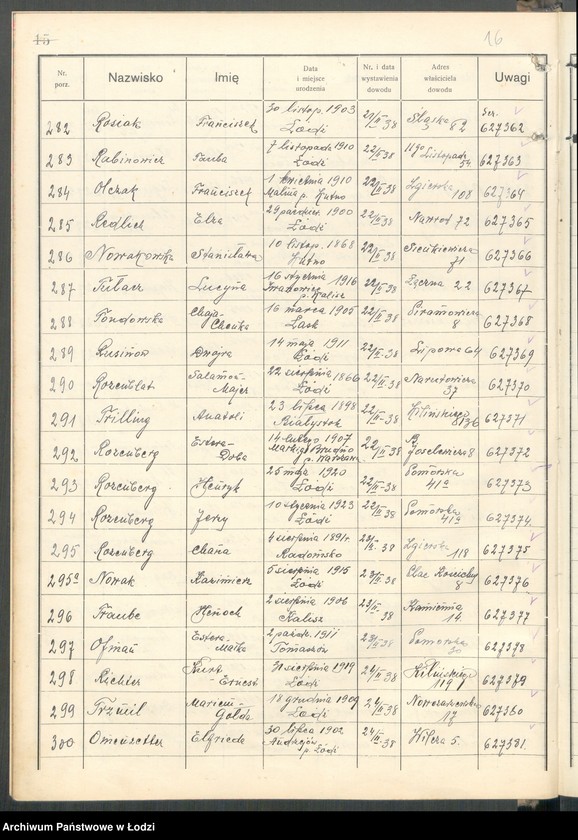 15
16
Nr. porz. Nazwisko Imię Data i miejsce urodzenia Nr. i data wystawienia dowodu Adres właściciela dowodu Uwagi
282 Rosiak Franciszek 30 listop. 1903 Łódź 21/II 38 Śląska 82 Ser. 627362
283 Rabinowicz Tauba 7 listopada 1910 Łódź 22/II 38 11go Listopada 54 627363
284 Olczak Franciszek 1 kwietnia 1910 Malina p. Kutno 22/II 38 Zgierska 108 627364
285 Redlich Elza 29 paździer. 1900 Łódź 22/II 38 Nawrot 72 627365
286 Nowakowska Stanisława 10 listop. 1868 Kutno 22/II 38 Sienkiewicza 71 627366
287 Tułacz Lucyna 16 stycznia 1916 Iwanowice p. Kalisz 22/II 38 22 627367
288 Tondowska Chaja- 16 marca 1905 Łask 22/II 38 Piramowicza 8 627368
289 Rusinow Dwojra 14 maja 1911 Łódź 22/II 38 Lipowa 64 627369
290 Rozenblat Salamon-Majer 22 sierpnia 1866 Łódź 22/II 38 Narutowicza 37 627370
291 Trilling Anatoli 23 lipca 1898 Białystok 22/II 38 Kilińskiego 627371
292 Rozenberg Estera-Doba 14 lutego 1907 p. Warszawa 22/II 38 Joselewicza 8 627372
293 Rozenberg Henryk 25 maja 1920 Łódź 22/II 38 Pomorska 41a 627373
294 Rozenberg Jerzy 10 stycznia 1923 Łódź 22/II 38 Pomorska 41a 627374
295 Rozenberg Chana 4 sierpnia 1891r. Radomsko 23/II 38 Zgierska 118 627375
295a Nowak Kazimierz 5 sierpnia 1915 Łódź 23/II 38 Plac Kościelny 8 627376
296 Traube Henoch 2 sierpnia 1906 Kalisz 23/II 38 Kamienna 14. 627377
297 Ofman Estera-Malka 2 paźdz. 1911 Tomaszów 23/II 38 Pomorska 627378
298 Richter Kurt-Ernest 31 sierpnia 1919 Łódź 24/II 38 Kilińskiego 119 627379
299 Trzmil Mariem-Gołda 18 grudnia 1909 Łódź 24/II 38 17 627380
300 Omenzetter Elfrieda 30 lipca 1902 Andrzejów p. Łódź 24/II 38 Wilcza 5. 627381.
Archiwum Państwowe w Łodzi